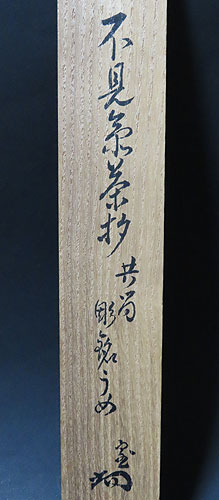 不見斎茶杓
共筒
彫銘うめ